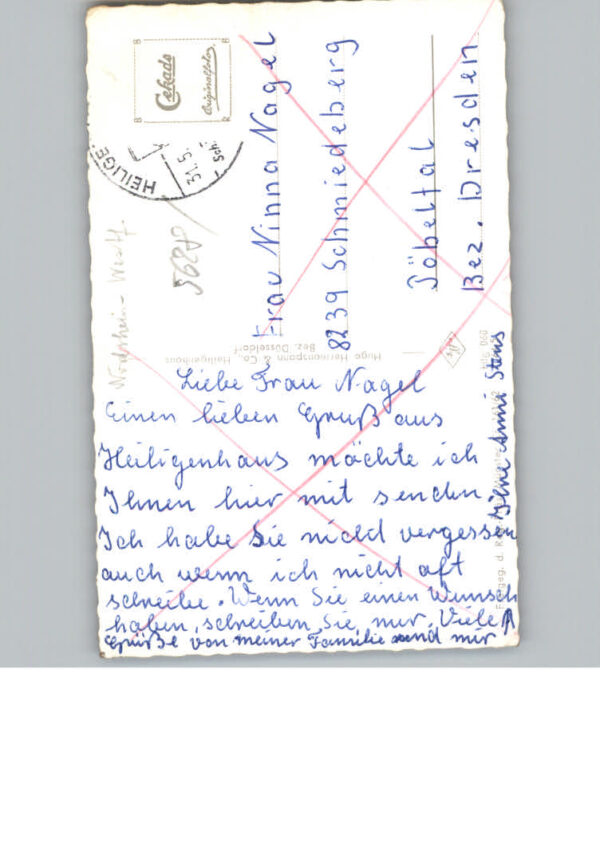 Cekade
Originalfoto
HEILIGE
31.5.
Sch.
5628
Frau Ninna Nagel
8239 Schmiedeberg
Pöbeltal
Bez. Dresden
Hugo Hermannspann & Co., Heiligenhaus
Bez. Düsseldorf
Liebe Frau Nagel
Einen lieben Gruß aus
Heiligenhaus möchte ich
Ihnen hier mit senden
Ich habe Sie nicht vergessen
auch wenn ich nicht oft
schreibe. Wenn Sie einen Wunsch
haben, schreiben Sie mir. Viele
Grüße von meiner Familie und mir
Ihre Anni Stens